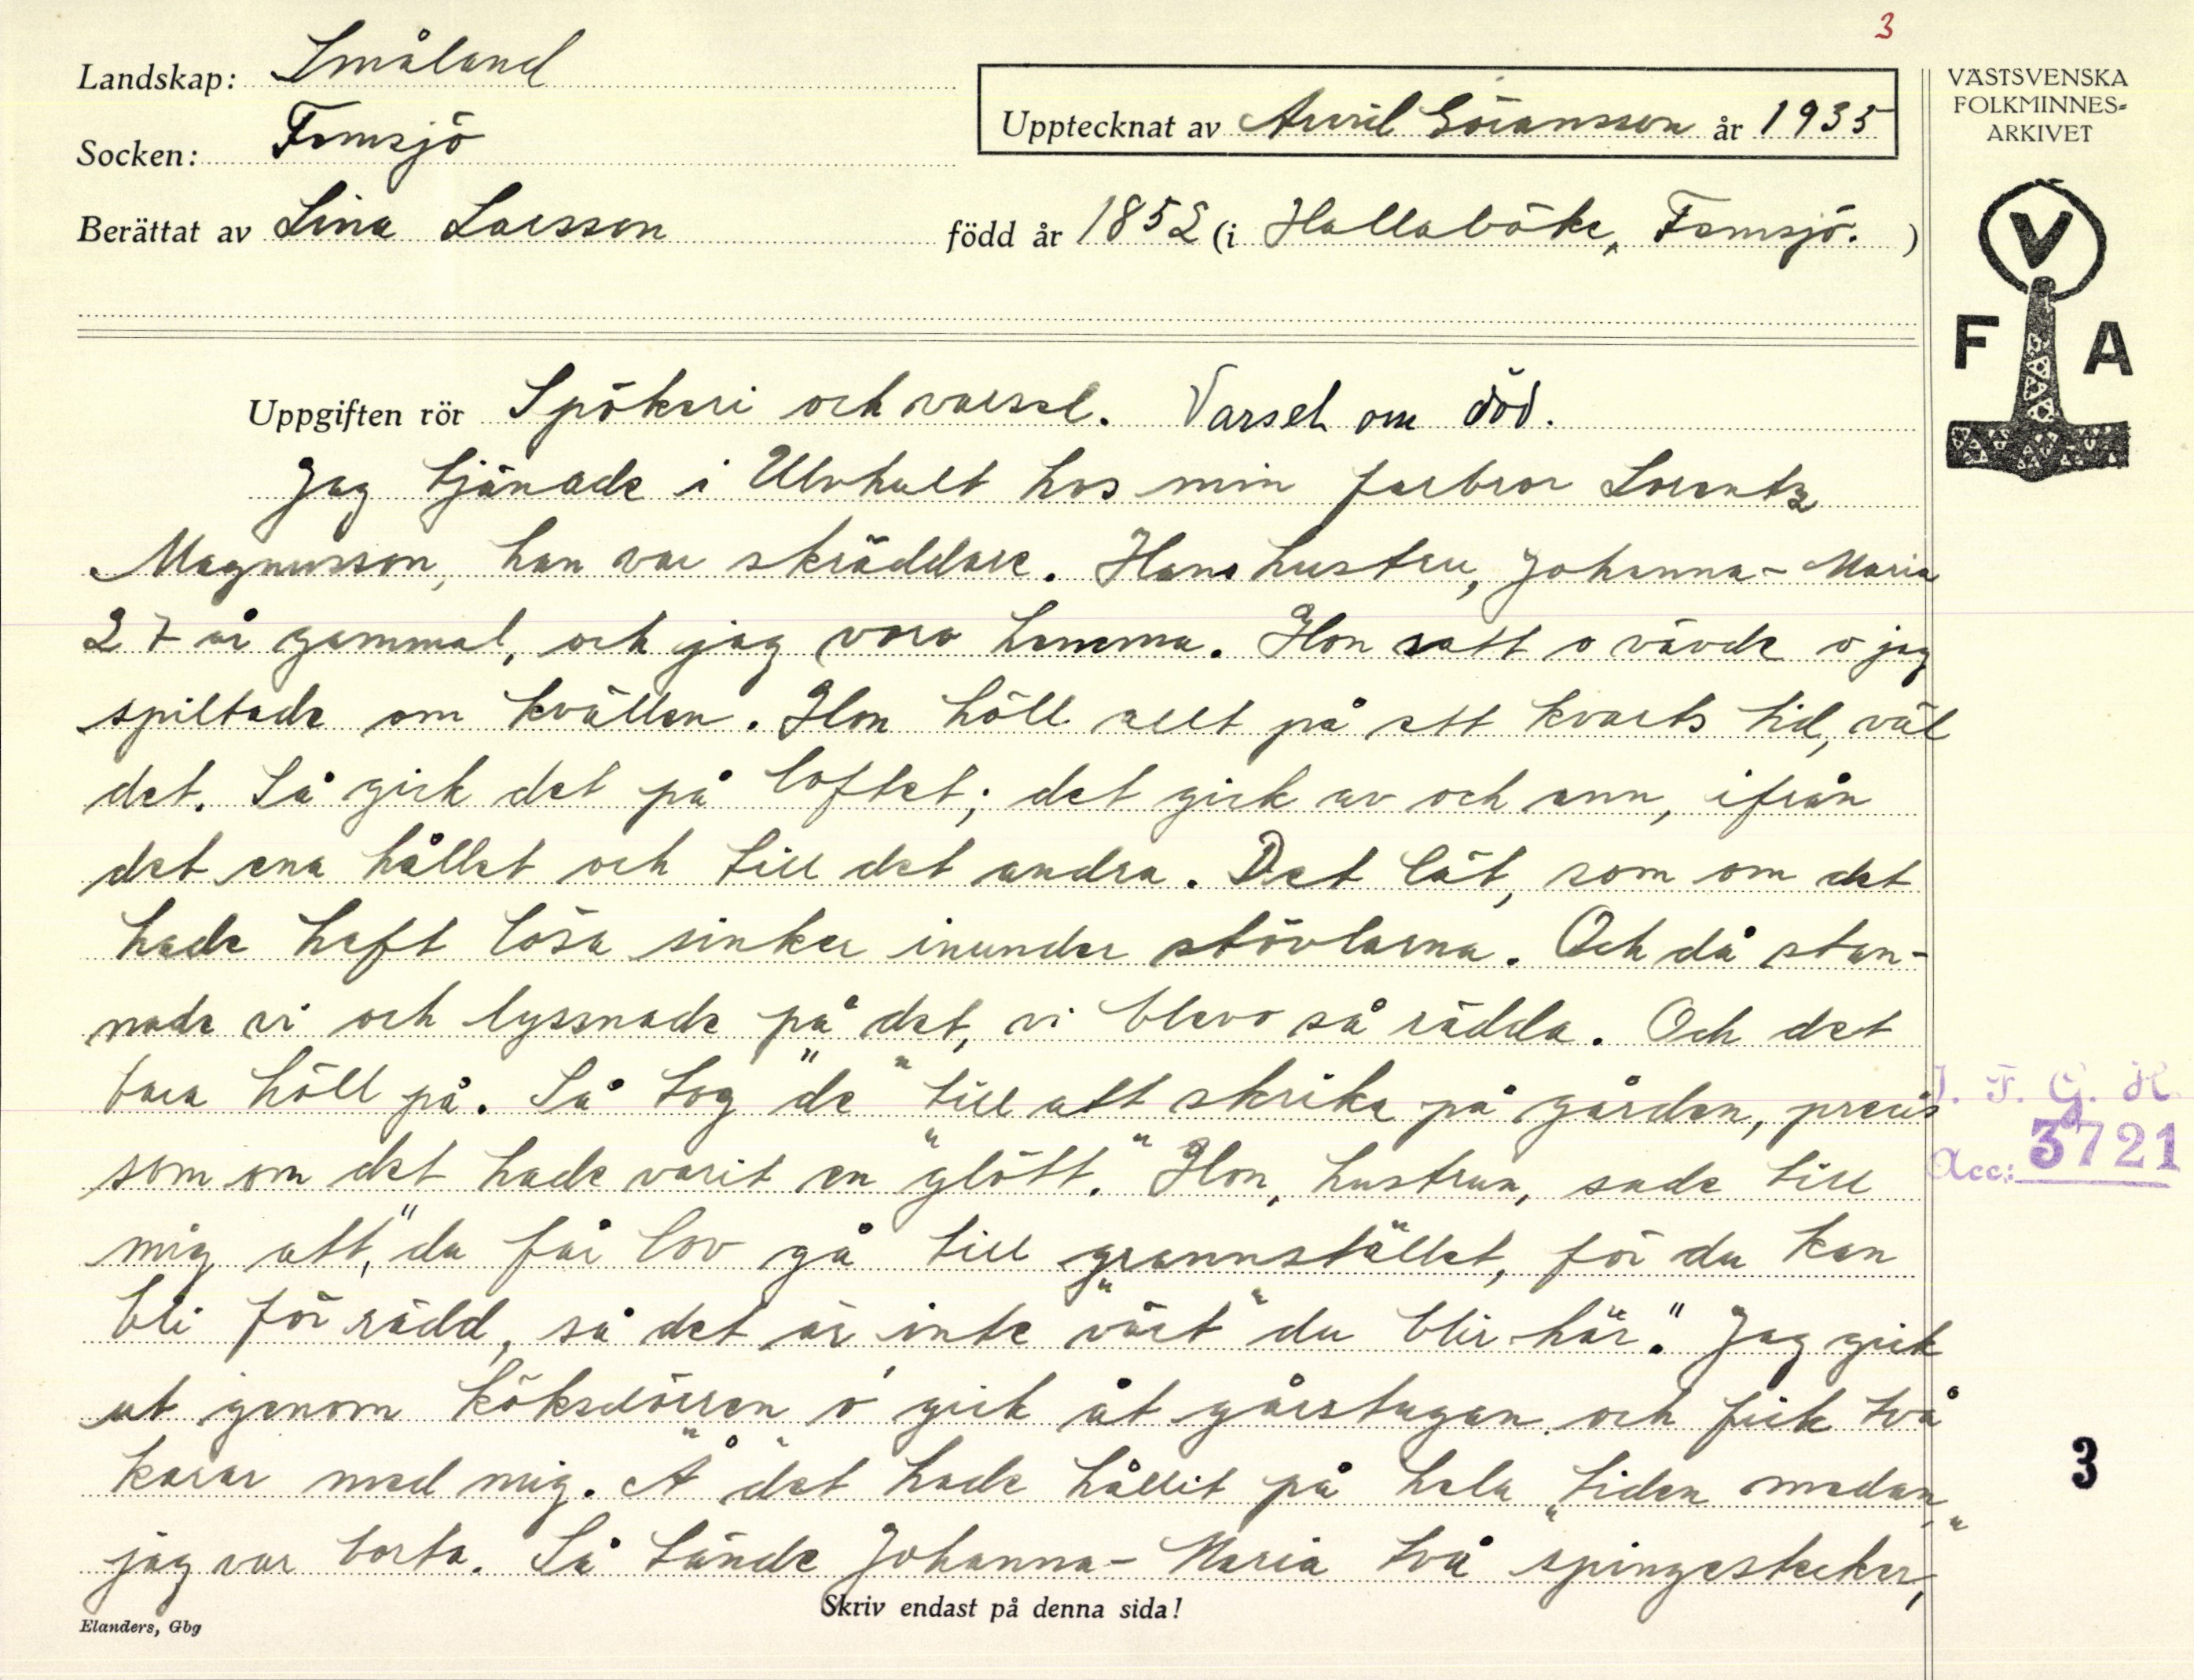 3
Landskap: Småland
Socken: Femsjö
Upptecknat av Arvid Göransson år 1935
VÄSTSVENSKA
FOLKMINNES-
ARKIVET
Berättat av Lina Larsson född år 1852 (i Hallaböke, Femsjö. )
V
F A
Uppgiften rör Spökeri och varsel. Varsel om död.
Jag tjänade i Ulvhult hos min farbror Lorentz
Magnusson, han var skräddare. Hans hustru, Johanna-Maria
27 år gammal, och jag voro hemma. Hon satt o vävde o jag
spiltade om kvällen. Hon höll allt på ett kvarts tid, väl
det. Så gick det på loftet; det gick av och ann, ifrån
det ena hållet och till det andra. Det lät, som om det
hade haft lösa sinker inunder stövlarna. Och då stan-
nade vi och lyssnade på det, vi blevo så rädda. Och det
bara höll på. Så tog "de" till att skrika på gården, precis
som om det hade varit en "glött." Hon, hustrun, sade till
mig att, "du får lov gå till grannstället, för du kan
bli för rädd, så det är inte "värt" du blir här." Jag gick
ut genom köksdörren o' gick åt gårstugan och fick två
karar med mig. "Å" det hade hållit på hela tiden medan
jag var borta. Så tände Johanna-Maria två "spingestecker,"
J. F. G. H.
Acc: 3721
3
Skriv endast på denna sida!
Elanders, Gbg